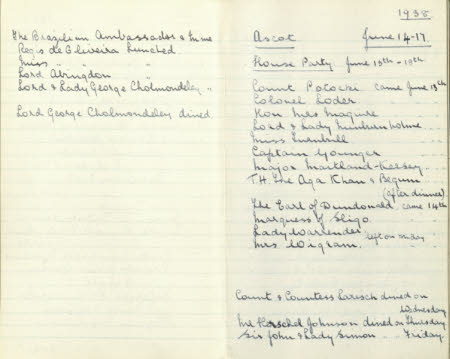 The Brazilian Ambassador & Mme
Regis de Oliveira lunched
Miss " " "
Lord Abingdon "
Lord & Lady George Cholmondeley "
Lord George Cholmondeley dined
1938
Ascot June 14-17
House Party June 13th - 18th
Count Potocki came June 13th
Colonel Loder " "
Hon Mrs Maguire " "
Lord & Lady Nunburnholme " "
Miss Turnbull " "
Captain Younger " "
Major Maitland-Kersey " "
T.H. The Aga Khan & Begum
(after dinner)
The Earl of Dundonald came 14th
Marquess of Sligo " "
Lady Warrender "
Mrs Wigram. left on
Count & Countess Larisch dined on
Wednesday
Mr Herschel Johnson dined on Thursday
Sir John & Lady Simon " " Friday